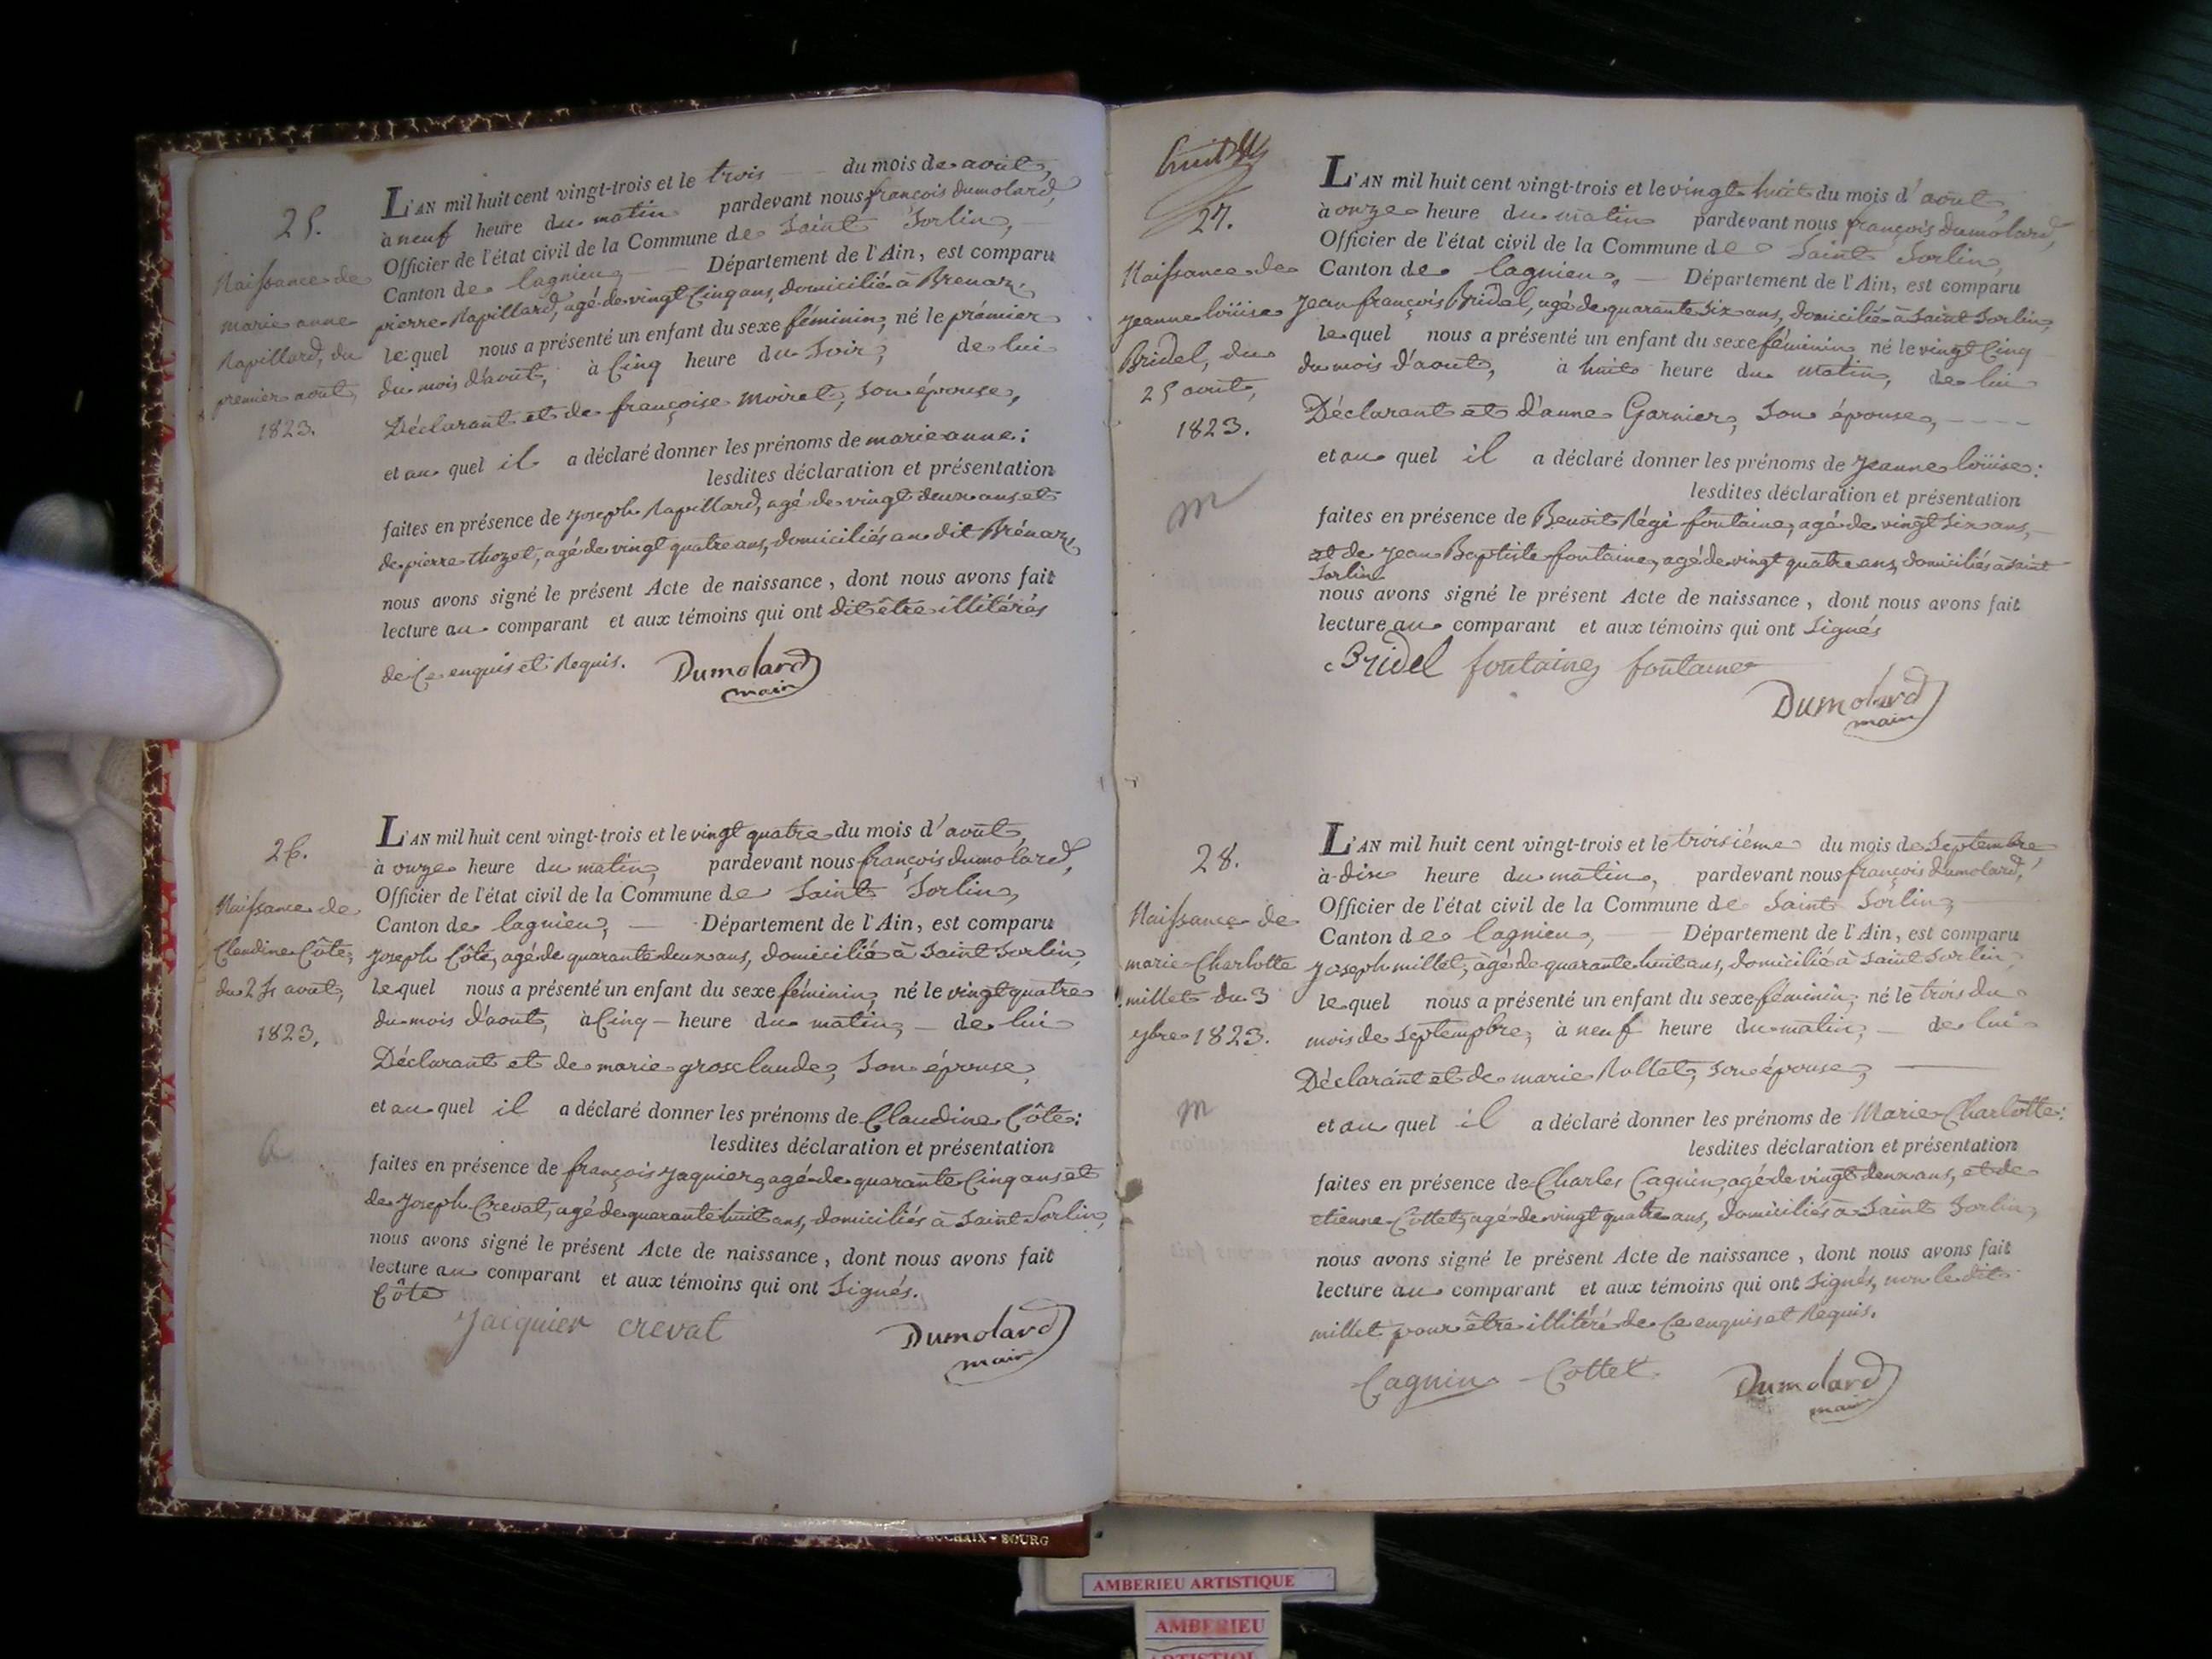 25.
Naissance de
marie anne
Ravillard, du
premier août,
1823.
L'AN mil huit cent vingt-trois et le trois du mois de août,
à neuf heure du matin pardevant nous françois dumolard,
Officier de l'état civil de la Commune de Saint Sorlin,
Canton de lagnieu, Département de l'Ain, est comparu
pierre Ravillard, agé de vingt Cinq ans, domicilié à Brenaz,
le quel nous a présenté un enfant du sexe féminin, né le prémier
du mois d'août, à Cinq heure du Soir, de lui
Déclarant et de françoise moiret, son épouse,
et au quel il a déclaré donner les prénoms de marie anne;
lesdites déclaration et présentation
faites en présence de joseph Ravillard, agé de vingt deux ans et
de pierre thozet, agé de vingt quatre ans, domiciliés au dit Brénaz,
nous avons signé le présent Acte de naissance, dont nous avons fait
lecture au comparant et aux témoins qui ont dit être illitérés
de Ce enquis et Requis. Dumolard
maire
26.
Naissance de
Claudine Côte,
du 24 août,
1823.
L'AN mil huit cent vingt-trois et le vingt quatre du mois d'août,
à onze heure du matin, pardevant nous françois dumolard,
Officier de l'état civil de la Commune de Saint Sorlin,
Canton de lagnieu, Département de l'Ain, est comparu
joseph Côte, agé de quarante deux ans, domicilié à Saint Sorlin,
le quel nous a présenté un enfant du sexe féminin, né le vingt quatre
du mois d'août, à Cinq heure du matin, de lui
Déclarant et de marie grosclaude, son épouse,
et au quel il a déclaré donner les prénoms de Claudine Côte:
lesdites déclaration et présentation
faites en présence de françois jaquier, agé de quarante Cinq ans et
de joseph Crevat, agé de quarante huit ans, domiciliés à Saint Sorlin,
nous avons signé le présent Acte de naissance, dont nous avons fait
lecture au comparant et aux témoins qui ont Signés.
Côte
Jacquier crevat Dumolard
maire
27.
Naissance de
jeanne loüise
Bridel, du
25 août,
1823.
m
L'AN mil huit cent vingt-trois et le vingt huit du mois d'août,
à onze heure du matin pardevant nous françois dumolard,
Officier de l'état civil de la Commune de Saint Sorlin,
Canton de lagnieu, Département de l'Ain, est comparu
jean françois Bridel, agé de quarante six ans, domicilié à Saint Sorlin,
le quel nous a présenté un enfant du sexe féminin, né le vingt Cinq
du mois d'août, à huit heure du matin, de lui
Déclarant et d'anne Garnier, son épouse,
et au quel il a déclaré donner les prénoms de jeanne loüise:
lesdites déclaration et présentation
faites en présence de Benoit Régi fontaine, agé de vingt six ans,
et de jean Baptiste fontaine, agé de vingt quatre ans, domiciliés à Saint
Sorlin
nous avons signé le présent Acte de naissance, dont nous avons fait
lecture au comparant et aux témoins qui ont Signés
Bridel fontaine fontaine
Dumolard
maire
28.
Naissance de
marie Charlotte
millet du 3
7bre 1823.
m
L'AN mil huit cent vingt-trois et le troisiéme du mois de Septembre,
à dix heure du matin, pardevant nous françois dumolard,
Officier de l'état civil de la Commune de Saint Sorlin,
Canton de lagnieu, Département de l'Ain, est comparu
joseph millet, âgé de quarante huit ans, domicilié à Saint Sorlin,
le quel nous a présenté un enfant du sexe féminin, né le trois du
mois de Septempbre, à neuf heure du matin, de lui
Déclarant et de marie Rollet, son épouse,
et au quel il a déclaré donner les prénoms de Marie Charlotte:
lesdites déclaration et présentation
faites en présence de Charles Cagnin, agé de vingt deux ans, et de
etienne Cottet, agé de vingt quatre ans, domiciliés à Saint Sorlin,
nous avons signé le présent Acte de naissance, dont nous avons fait
lecture au comparant et aux témoins qui ont signés, non le dit
millet pour être illitéré de Ce enquis et Requis.
Cagnin Cottet Dumolard
maire
BOURG
AMBERIEU ARTISTIQUE
AMBERIEU
ARTISTIQUE